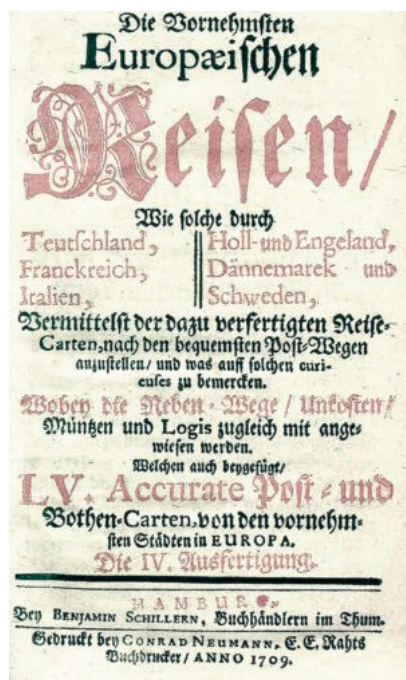 Die Vornehmsten
Europæischen
Reisen/
Wie solche durch
Teutschland,
Franckreich,
Italien,
Holl- und Engeland,
Dännemarck und
Schweden,
Vermittelst der dazu verfertigten Reise-
Carten, nach den bequemsten Post-Wegen
anzustellen/ und was auff solchen curi-
euses zu bemercken.
Wobey die Neben-Wege/ Unkosten/
Müntzen und Logis zugleich mit ange-
wiesen werden.
Welchen auch beygefügt/
LV. Accurate Post- und
Bothen-Carten, von den vornehm-
sten Städten in EUROPA.
Die IV. Ausfertigung.
HAMBURG,
Bey BENJAMIN SCHILLERN, Buchhändlern im Thum.
Gedruckt bey CONRAD NEUMANN, E. E. Rahts
Buchdrucker/ ANNO 1709.